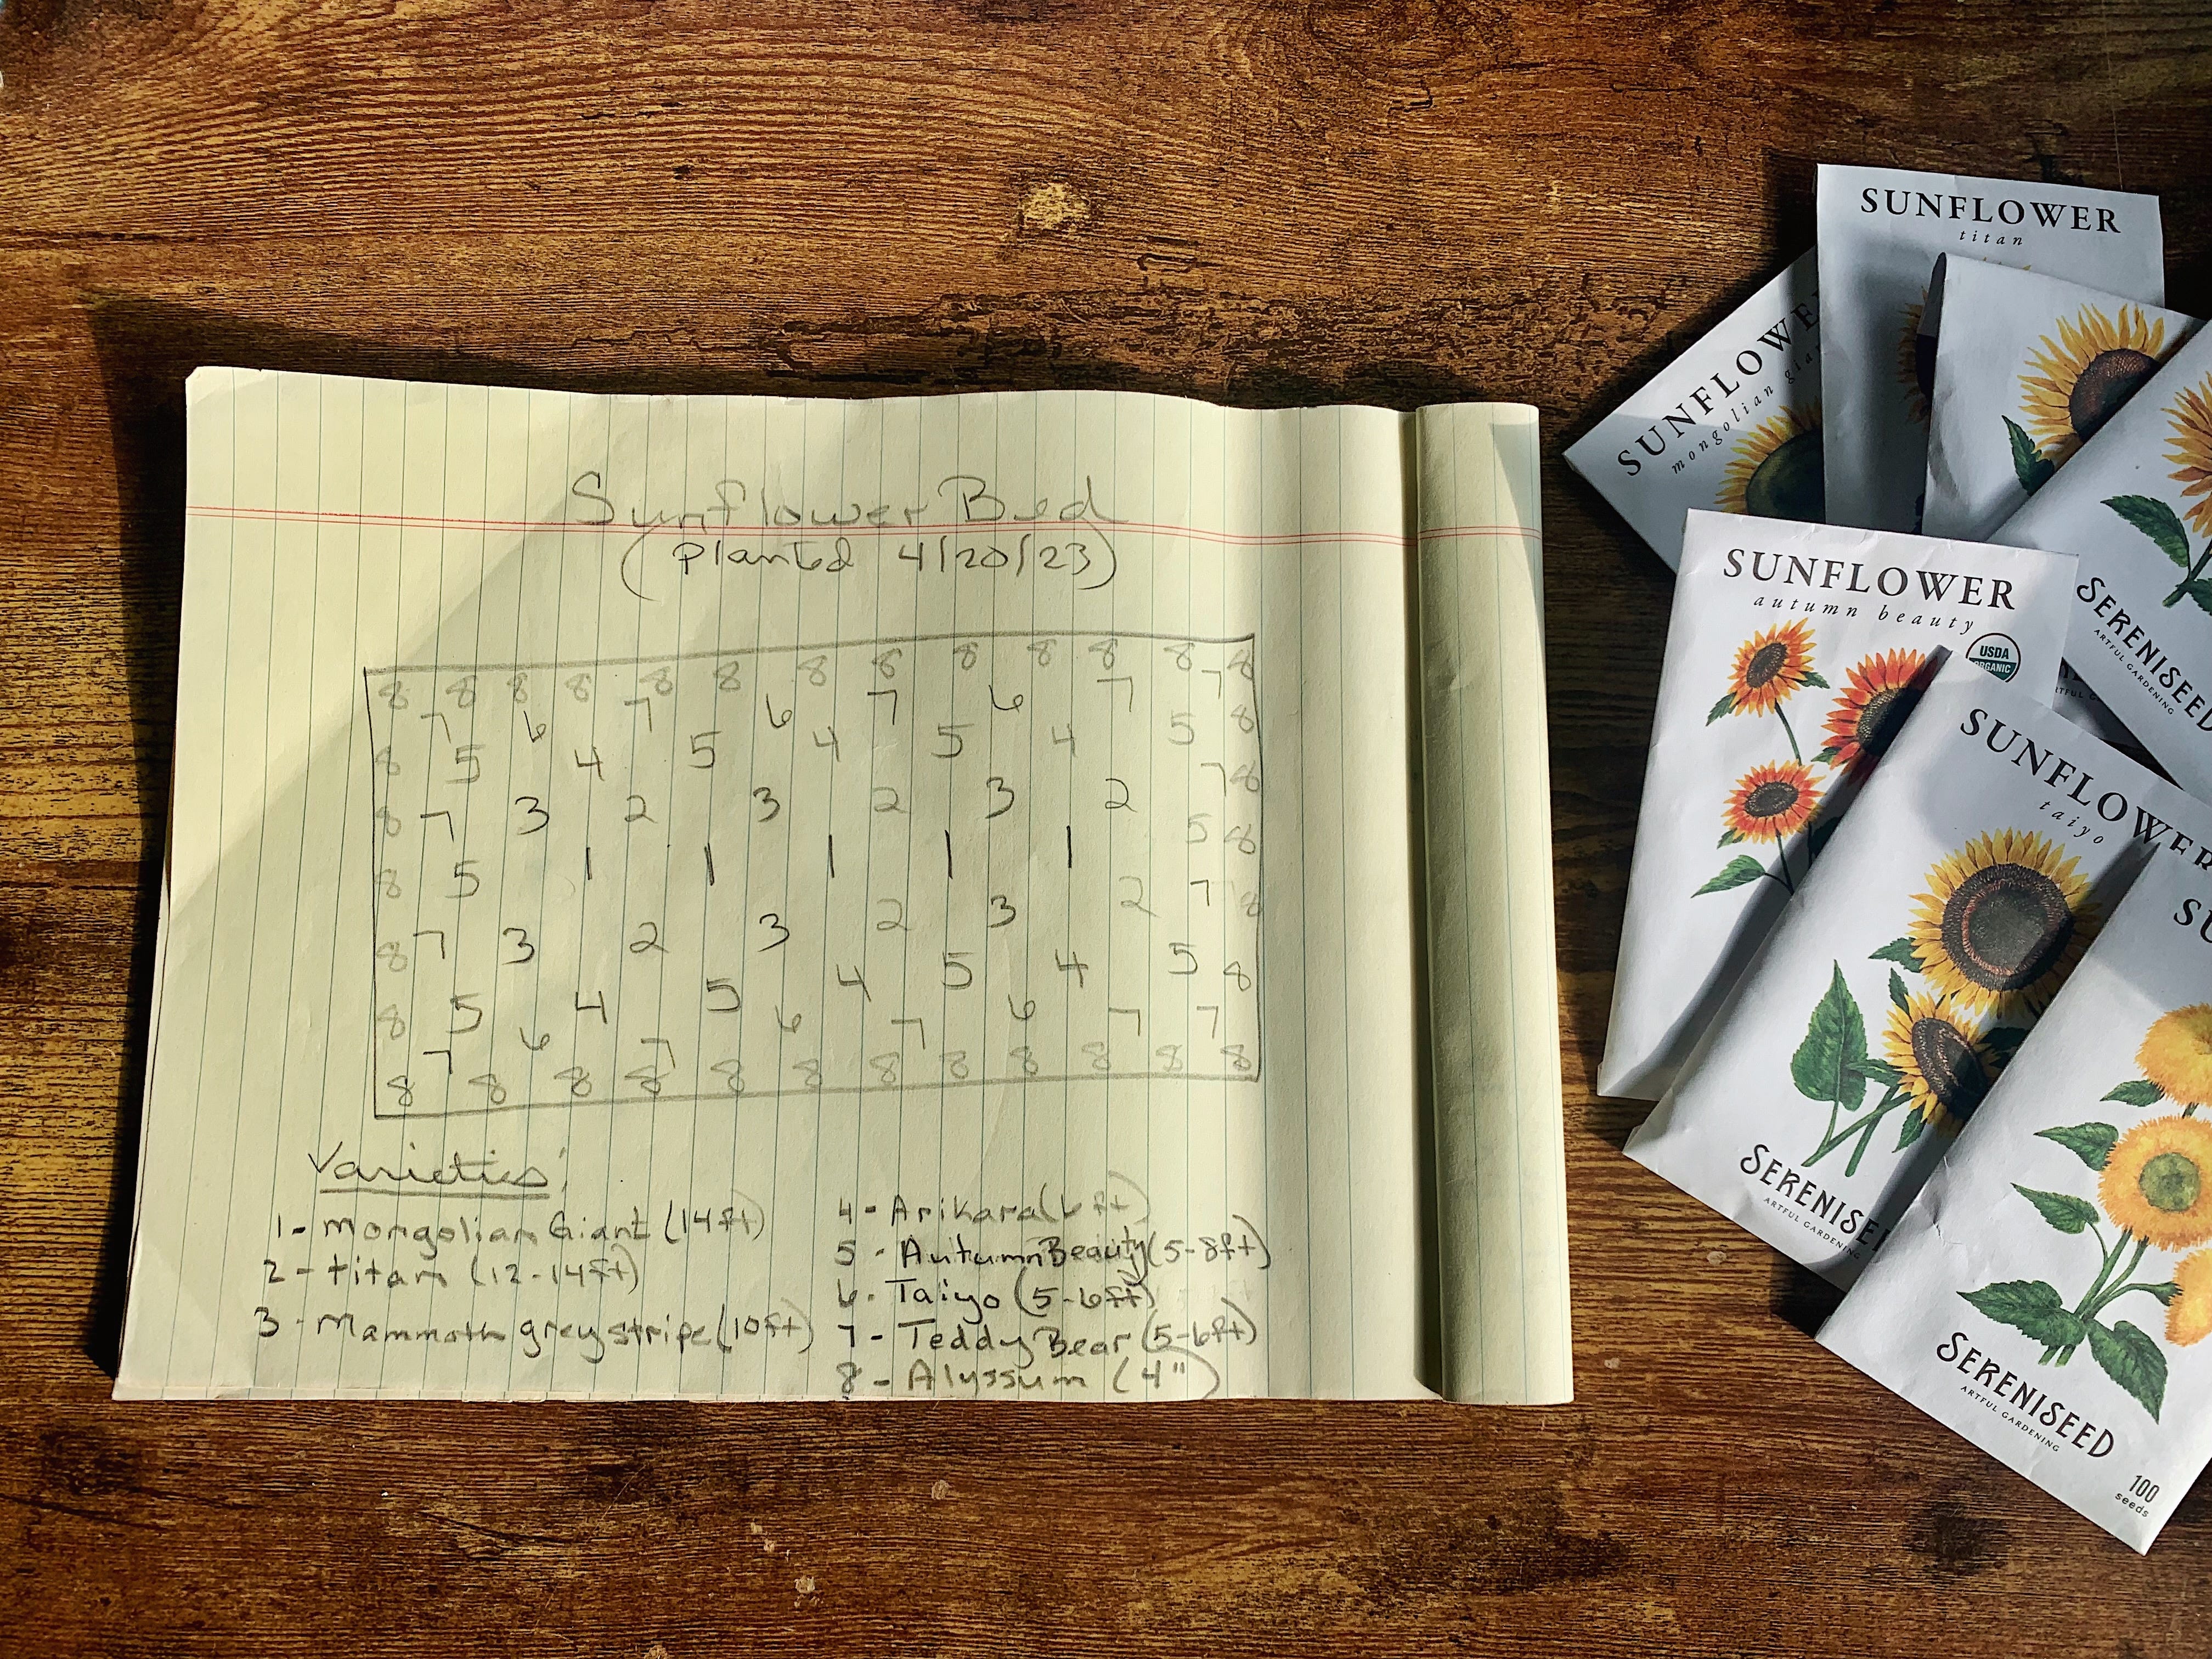 Sunflower Bed
(planted 4/20/23)
8 8 8 8 8 8 8 8 8 8 8 8 8
7 6 7 6 7 6 7 7
8 5 4 5 4 5 4 5 8
8 7 3 2 3 2 3 2 7 8
8 5 1 1 1 1 1 5 8
8 7 3 2 3 2 3 2 7 8
8 5 4 5 4 5 4 5 8
7 6 7 6 7 6 7 7
8 8 8 8 8 8 8 8 8 8 8 8
Varieties:
1- Mongolian Giant (14ft)
2- titan (12-14ft)
3- Mammoth grey stripe (10ft)
4- Arikara (6ft)
5- Autumn Beauty (5-8ft)
6- Taiyo (5-6ft)
7- Teddy Bear (5-6ft)
8- Alyssum (4")
SUNFLOWER
titan
SUNFLOWE
mongolian gia
SERENISEED
ARTFUL GARDENING
SUNFLOWER
autumn beauty
USDA
ORGANIC
SUNFLOWER
taiyo
SERENISE
ARTFUL GARDENING
SU
SERENISEED
ARTFUL GARDENING
100
seeds